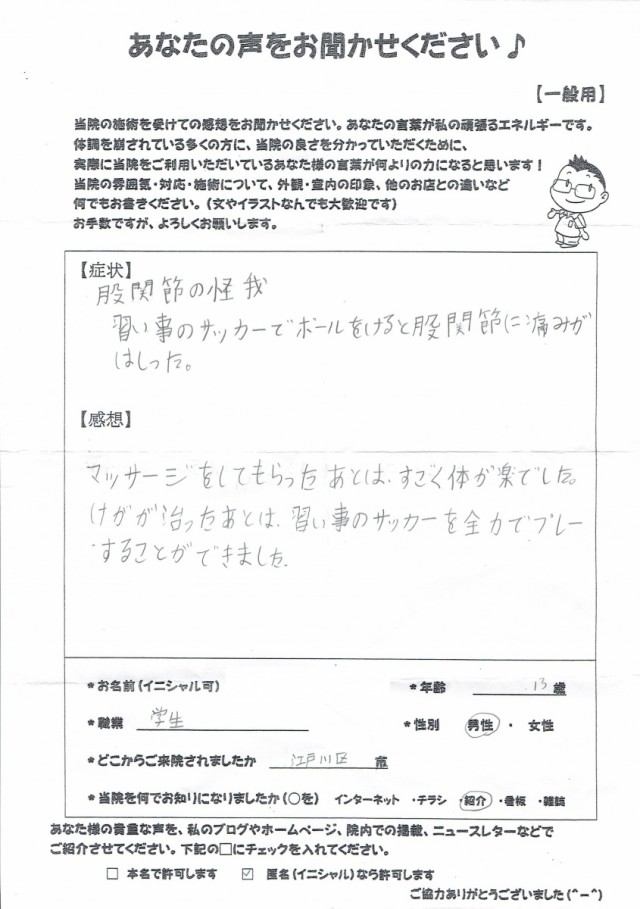 あなたの声をお聞かせください♪
【一般用】
当院の施術を受けての感想をお聞かせください。あなたの言葉が私の頑張るエネルギーです。
体調を崩されている多くの方に、当院の良さを分かっていただくために、
実際に当院をご利用いただいているあなた様の言葉が何よりの力になると思います！
当院の雰囲気・対応・施術について、外観・室内の印象、他のお店との違いなど
何でもお書きください。（文やイラストなんでも大歓迎です）
お手数ですが、よろしくお願いします。
【症状】
股関節の怪我
習い事のサッカーでボールをけると股関節に痛みが
はしった。
【感想】
マッサージをしてもらったあとは、すごく体が楽でした。
けがが治ったあとは、習い事のサッカーを全力でプレー
することができました。
*お名前（イニシャル可） *年齢 13 歳
*職業 学生 *性別 男性 ・ 女性
*どこからご来院されましたか 江戸川区 市
*当院を何でお知りになりましたか（○を） インターネット ・チラシ ・紹介 ・看板 ・雑誌
あなた様の貴重な声を、私のブログやホームページ、院内での掲載、ニュースレターなどで
ご紹介させてください。下記の□にチェックを入れてください。
□ 本名で許可します ☑ 匿名（イニシャル）なら許可します
ご協力ありがとうございました(^-^)